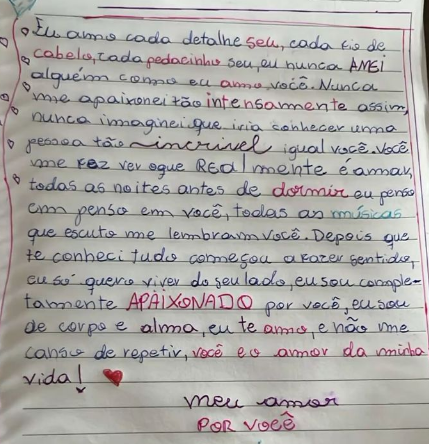 Eu amo cada detalhe seu, cada fio de
cabelo, cada pedacinho seu, eu nunca AMEI
alguém como eu amo você. Nunca
me apaixonei tão intensamente assim,
nunca imaginei que iria conhecer uma
pessoa tão incrível igual você. Você
me fez ver oque REALmente é amar,
todas as noites antes de dormir eu penso
em penso em você, todas as músicas
que escuto me lembram você. Depois que
te conheci tudo começou a fazer sentido,
eu só quero viver do seu lado, eu sou comple-
tamente APAIXONADO por você, eu sou
de corpo e alma, eu te amo, e não me
canso de repetir, você e o amor da minha
vida! ❤
meu amor
POR VOCÊ